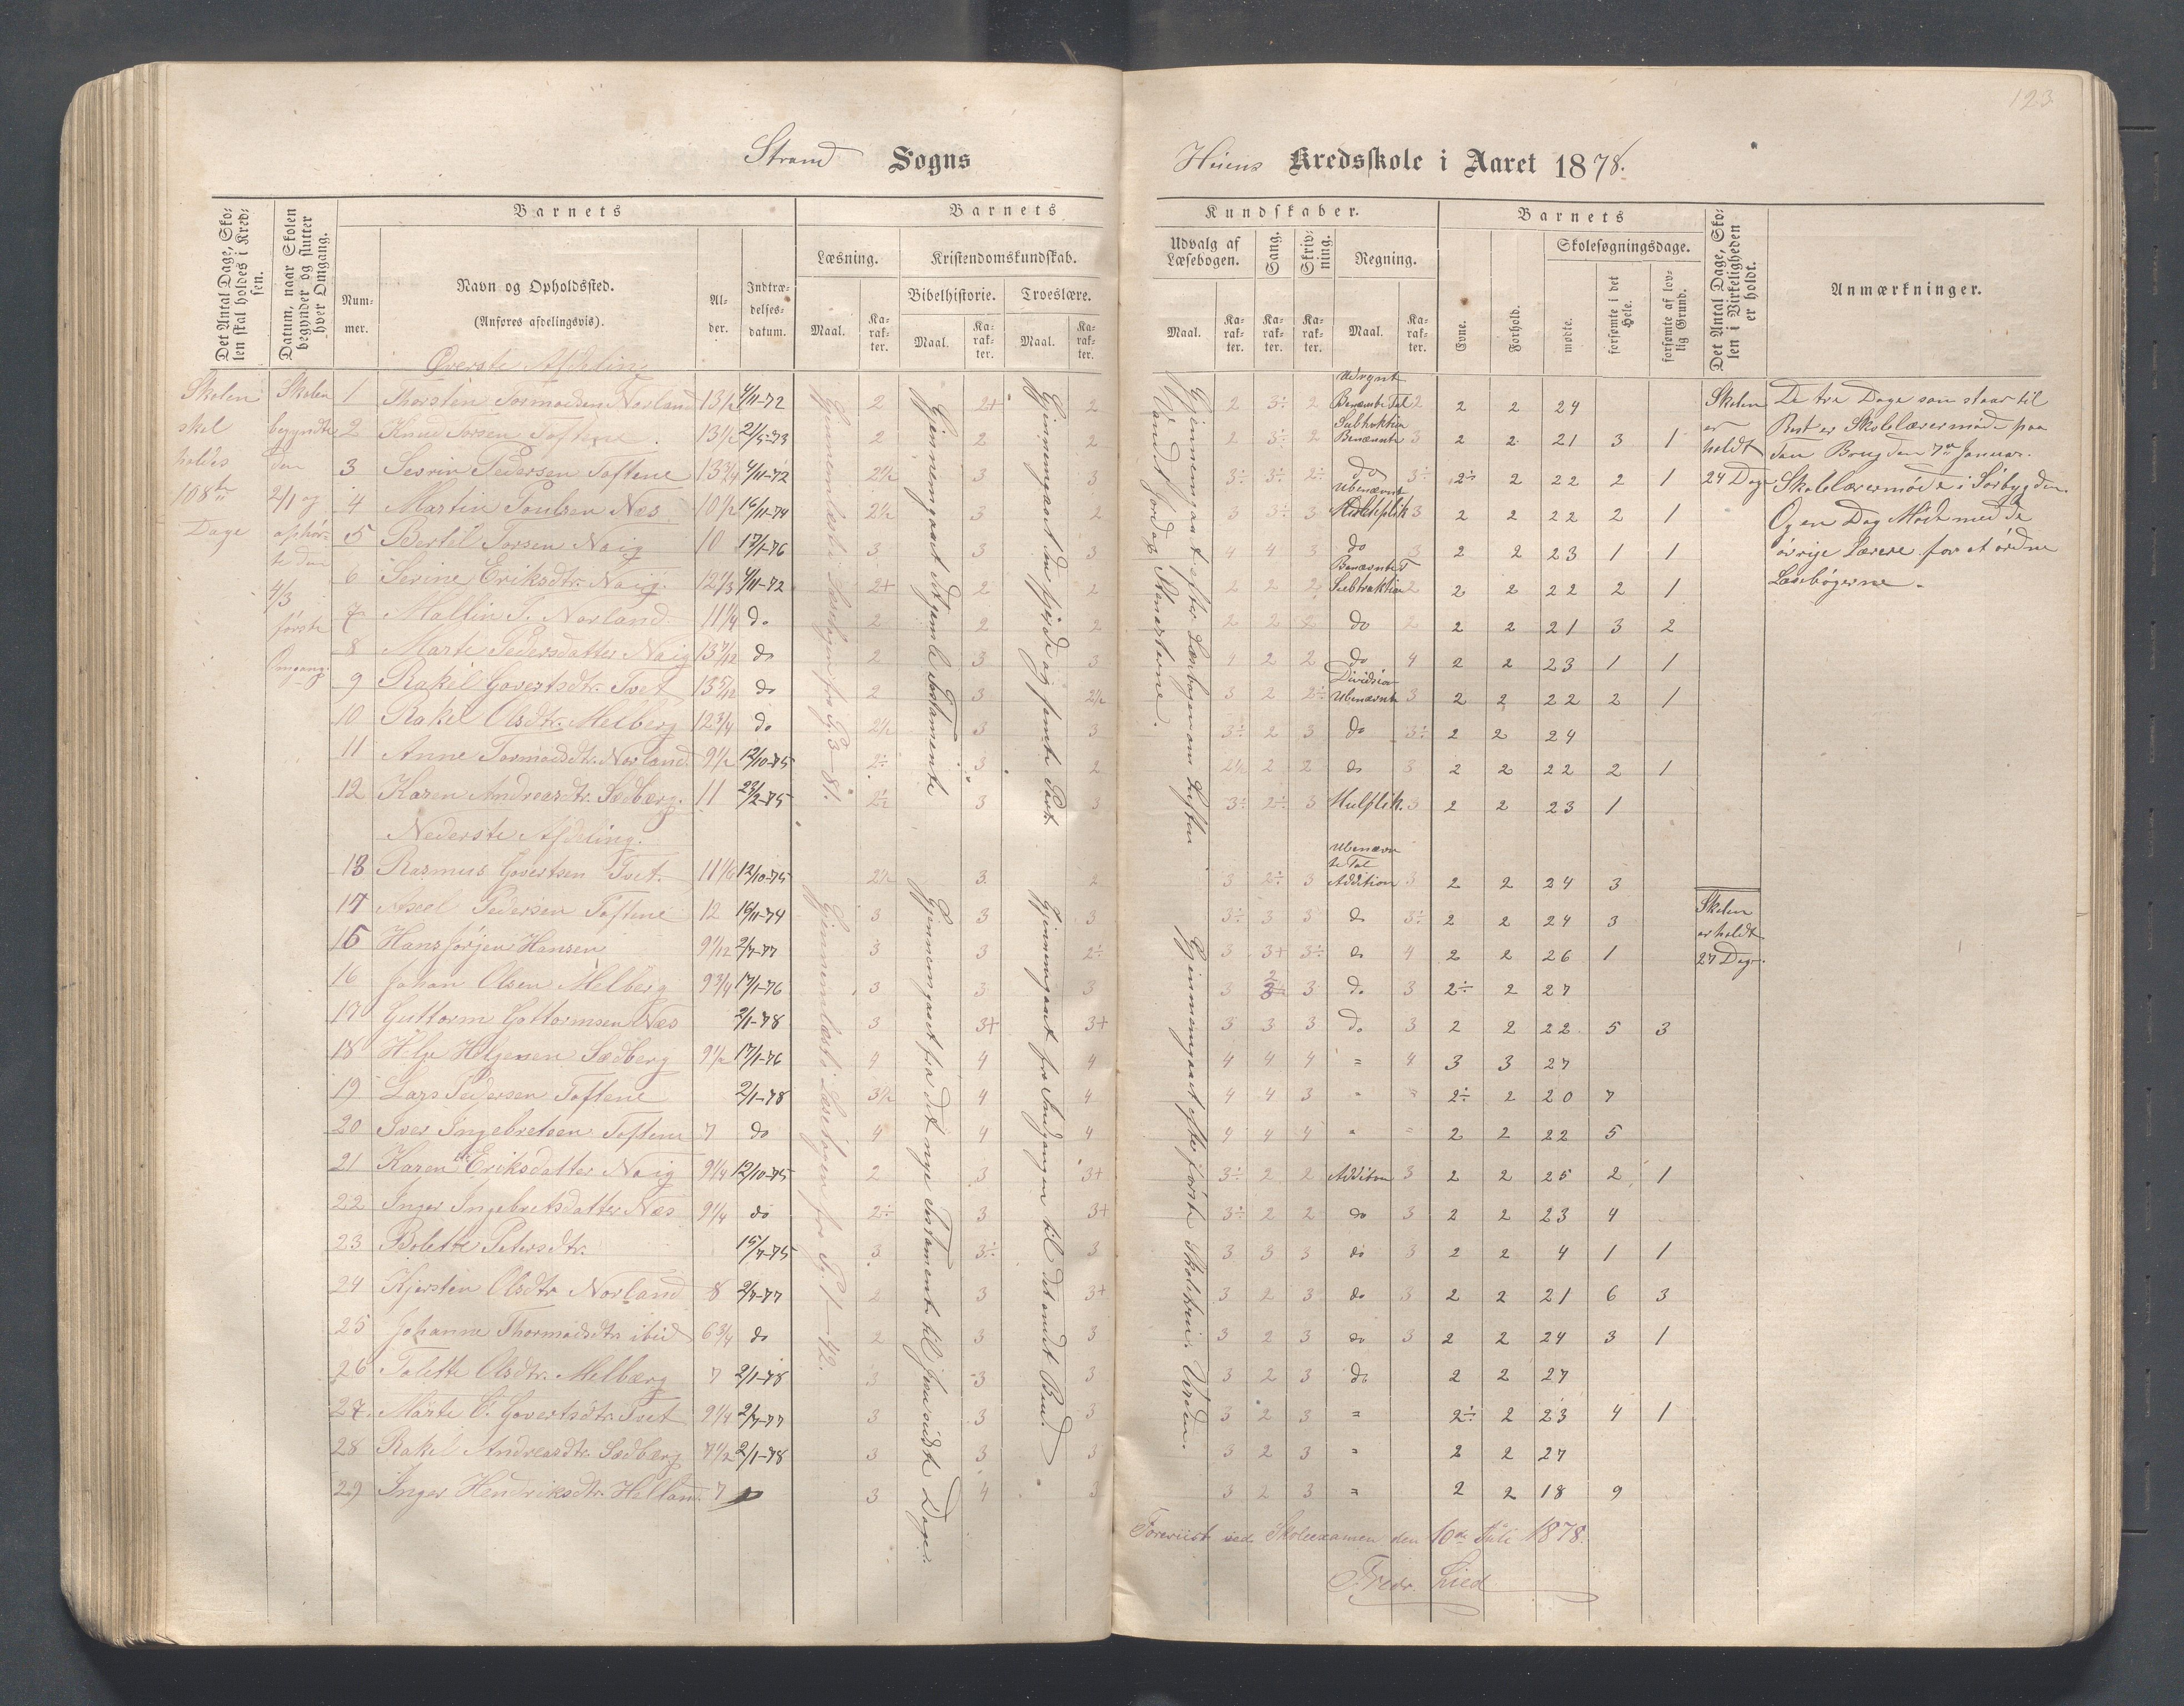 123
Strand Sogns
Huens Kredsskole i Aaret 1878.
Det Antal Dage, Skolen skal holdes i Kredsen.
Datum, naar Skolen begynder og slutter hver Omgang.
Barnets
Nummer.
Navn og Opholdssted.
(Anføres afdelingsvis).
Alder.
Indtrædelsesdatum.
Barnets
Læsning.
Kristendomskundskab.
Bibelhistorie.
Troeslære.
Maal.
Karakter.
Maal.
Karakter.
Maal.
Karakter.
Kundskaber.
Udvalg af Læsebogen.
Sang.
Skrivning.
Regning.
Maal.
Karakter.
Karakter.
Karakter.
Maal.
Karakter.
Barnets
Evne.
Forhold.
Skolesøgningsdage.
mødte.
forsømte i det Hele.
forsømte af lovlig Grund.
Det Antal Dage, Skolen i Virkeligheden er holdt.
Anmærkninger.
Skolen
skal
holdes
108
Dage
Skolen
begyndte
den
2/1 og
ophør-
te den
4/3
første
Omgang.
Øverste Afdeling
1 Thorsten Tormodsen Norland 13 1/2 4/11-72 2 2+ 2 2 3÷ 2 Benævnte Tal 2 2 2 24
2 Knud Torsen Toftene 13 1/2 2/5-73 2 2 2 2 3÷ 2 Subtraktion Benævnte 3 2 2 21 3 1
3 Sevrin Pedersen Toftene 13 3/4 4/11-72 2 1/2 3 3 3÷ 3÷ 2÷ do 3÷ 2÷ 2 22 2 1
4 Martin Poulsen Næs 10 1/2 16/11-74 2 1/2 3 2 3 3÷ 3 Ubenævnt Multiplik 3 2 2 22 2 1
5 Bertil Torsen Naig 10 17/1-76 3 3 3 4 4 3 do 3 2 2 23 1 1
6 Serine Eriksdtr. Naig 12 1/3 4/11-72 2+ 2 2 2 2 2 Benævnte T Subtraktion 2 2 2 22 2 1
7 Mallin T. Norland 11 1/4 do 2 2 2 2 2 2 do 2 2 2 21 3 2
8 Marte Pedersdatter Naig 13 7/12 do 2 3 3 4 2 2 do 4 2 2 23 1 1
9 Rakel Govertsdtr. Tvet 13 5/12 do 2 3 2 1/2 3 2 2÷ Division Ubenævnte 3 2 2 22 2 1
10 Rakel Olsdtr. Melberg 12 3/4 do 2 1/2 3 3 3÷ 2 3 do 3÷ 2 2 24
11 Anne Tormodsdtr. Norland 9 1/2 12/10-75 2÷ 3 2 2 1/2 2 2 do 3 2 2 22 2 1
12 Karen Andreasdtr. Sædberg 11 23/2-75 2÷ 3 3 3÷ 2÷ 3 Mulplik. 3 2 2 23 1
Gjennemlæst i Læsebogen fra Pg. 3-81.
Gjennemgaaet det gamle Testamente
Gjennemgaaet den fjerde og femte Part
Gjennemgaaet efter Læsebogen om Luften Vandet Jordens
Skolen
er
holdt
24 Dage
De tre Dage som staar til
Rest er Skolelærermøde paa
Tau Brug den 7de Januar.
Skolelærermøde i Sørbygden.
Og en Dag Møde med de
øvrige Lærere for at ordne
Læsebøgerne.
Nederste Afdeling.
13 Rasmus Govertsen Tvet 11 1/6 12/10-75 2 1/2 3 2 3 2÷ 3 Ubenævnte Tal Addition 3 2 2 24 3
14 Axel Pedersen Toftene 12 16/11-74 3 3 3 3÷ 3 3 do 3÷ 2 2 24 3
15 Hans Jørjen Hansen 9 1/12 2/7-77 3 3 2÷ 3 3+ 3÷ do 4 2 2 26 1
16 Johan Olsen Melberg 9 3/4 17/1-76 3 3 3 3 2 3 do 3 2÷ 2 27
17 Guttorm Gottormsen Næs 2/1-78 3 3+ 3+ 3 3 3 do 3 2 2 22 5 3
18 Helge Helgesen Sædberg 9 1/2 17/1-76 4 4 4 4 4 4 = 4 3 3 27
19 Lars Pedersen Toftene 2/1-78 3 1/2 4 4 4 4 3 " = 2÷ 2 20 7
20 Iver Ingebretsen Toftene 7 do 4 4 4 4 4 4 " = 2 2 22 5
21 Karen Eriksdatter Naig 9 1/4 12/10-75 2 3 3+ 3÷ 2 2 Addition 3 2 2 25 2 1
22 Inger Ingebretsdatter Næs 9 1/4 do 2÷ 3 3+ 3÷ 2 2 do 3 2 2 23 4
23 Bolette Petersdtr. 15/7-75 3 3÷ 3 3 3 3 do 3 2 2 4 1 1
24 Kjersten Olsdtr Norland 8 2/7-77 2 3 3+ 3 2 3 do 3 2 2 21 6 3
25 Johanne Thormodsdtr ibid 6 3/4 do 2 3 3 3 2 3 do 3 2 2 24 3 1
26 Tolette Olsdtr. Melberg 7 2/1-78 3 3 3 3 2 3 do 2 2 27
27 Marte C. Govertsdtr Tvet 9 1/4 2/7-77 3 3 3 3 2 3 = 2÷ 2 23 4 1
28 Rakel Andreasdtr. Sædberg 7 1/2 2/1-78 3 3 3 3 2 3 " 2 2 27
29 Inger Hendriksdtr. Helland 7 3 4 3 3 2 3 = 2 2 18 9
Gjennemlæst i Læsebogen fra Pg. 1-42.
Gjennemgaaet fra det nye Testamente til Dage.
Gjennemgaaet fra Indgangen til det andet Bud
Gjennemgaaet efter første Skoletrin Verden.
Skolen
er holdt
27 Dage.
Foreviist ved Skoleexamen den 10de Juli 1878.
Fredr. Lied